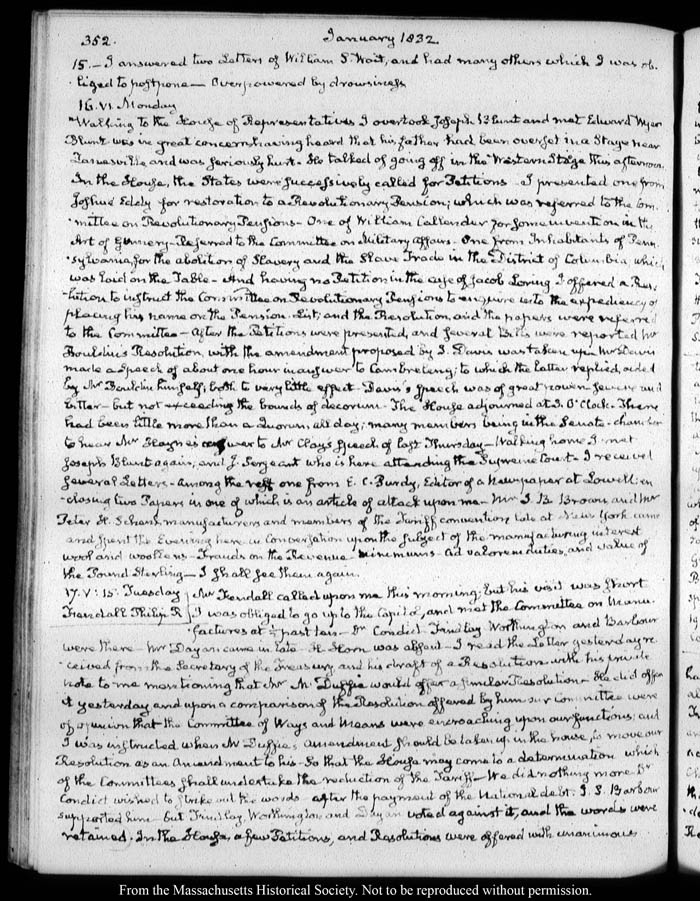 352. January 1832.
15. — I answered two Letters of William S. Wait, and had many others which I was ob-
liged to postpone — Overpowered by drowsiness
16. VI. Monday
Walking to the House of Representatives I overtook Joseph Blunt and met Edward Wyer
Blunt was in great concern having heard that his father had been overset in a Stage near
Zanesville and was seriously hurt. He talked of going off in the Western Stage this afternoon.
In the House, the States were successively called for Petitions. I presented one from
Joshua Eddy for restoration to a Revolutionary Pension; which was referred to the Com-
mittee on Revolutionary Pensions — One of William Callender for some invention in the
Art of Gunnery — Referred to the Committee on Military affairs. One from Inhabitants of Penn-
sylvania, for the abolition of Slavery and the Slave Trade in the District of Columbia which
was laid on the Table — And having no Petition in the case of Jacob Loring I offered a Reso-
lution to instruct the Committee on Revolutionary Pensions to enquire into the expediency of
placing his name on the Pension List, and the Resolution, and the papers were referred
to the Committee — After the Petitions were presented, and several Bills were reported Mr
Bouldin's Resolution, with the amendment proposed by J. Davis was taken up. Mr Davis
made a Speech of about one hour in answer to Cambreleng; to which the latter replied, aided
by Mr Bouldin himself; both to very little effect. Davis's Speech was of great power severe and
bitter — but not exceeding the bounds of decorum. The House adjourned at 3. O'Clock. There
had been little more than a Quorum all day; many members being in the Senate-chamber
to hear Mr Hayne's answer to Mr Clay's Speech of last Thursday — Walking home I met
Joseph Blunt again, and J. Sergeant who is here attending the Supreme Court — I received
several Letters — Among the rest one from E. C. Purdy, Editor of a Newspaper at Lowell en-
closing two Papers in one of which is an article of attack upon me — Mr J. B. Brown and Mr
Peter H. Schenk manufacturers and members of the Tariff convention late at New York came
and spent the Evening here in Conversation upon the subject of the manufacturing interest
wool and woollens — Frauds on the Revenue minimums — Ad valorem duties, and value of
the Pound Sterling — I shall see them again.
17. V: 15. Tuesday Mr Fendall called upon me this morning; but his visit was short
Fendall Philip R I was obliged to go up to the Capitol, and met the Committee on Manu-
factures at ½ past ten — Dr Condict — Findlay Worthington and Barbour
were there — Mr Dayan came in late — H. Horn was absent — I read the Letter yesterday re-
ceived from the Secretary of the Treasury and his draft of a Resolution with his private
note to me mentioning that Mr McDuffie would offer a similar Resolution — He did offer
it yesterday and upon a comparison of the Resolution offered by him our Committee were
of opinion that the Committee of Ways and Means were encroaching upon our functions; and
I was instructed when McDuffie's Amendment should be taken up in the house, to move our
Resolution as an Amendment to his. So that the House may come to a determination which
of the Committees shall undertake the reduction of the Tariff — We did nothing more. Dr
Condict wished to strike out the words after the payment of the National debt. J. S. Barbour
supported him — but Findlay, Worthington and Dayan voted against it, and the words were
retained. In the House, a few Petitions, and Resolutions were offered with unanimous
From the Massachusetts Historical Society. Not to be reproduced without permission.